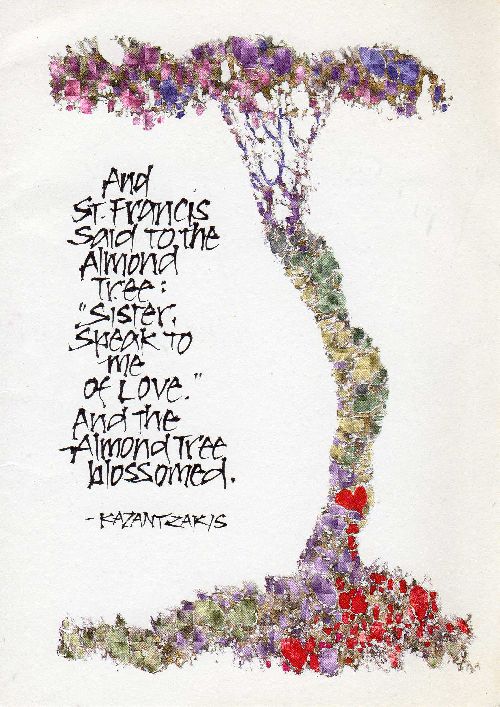 And
St. Francis
said to the
Almond
Tree:
"Sister,
speak to
me
of Love."
And the
Almond Tree
blossomed.
- KAZANTZAKIS